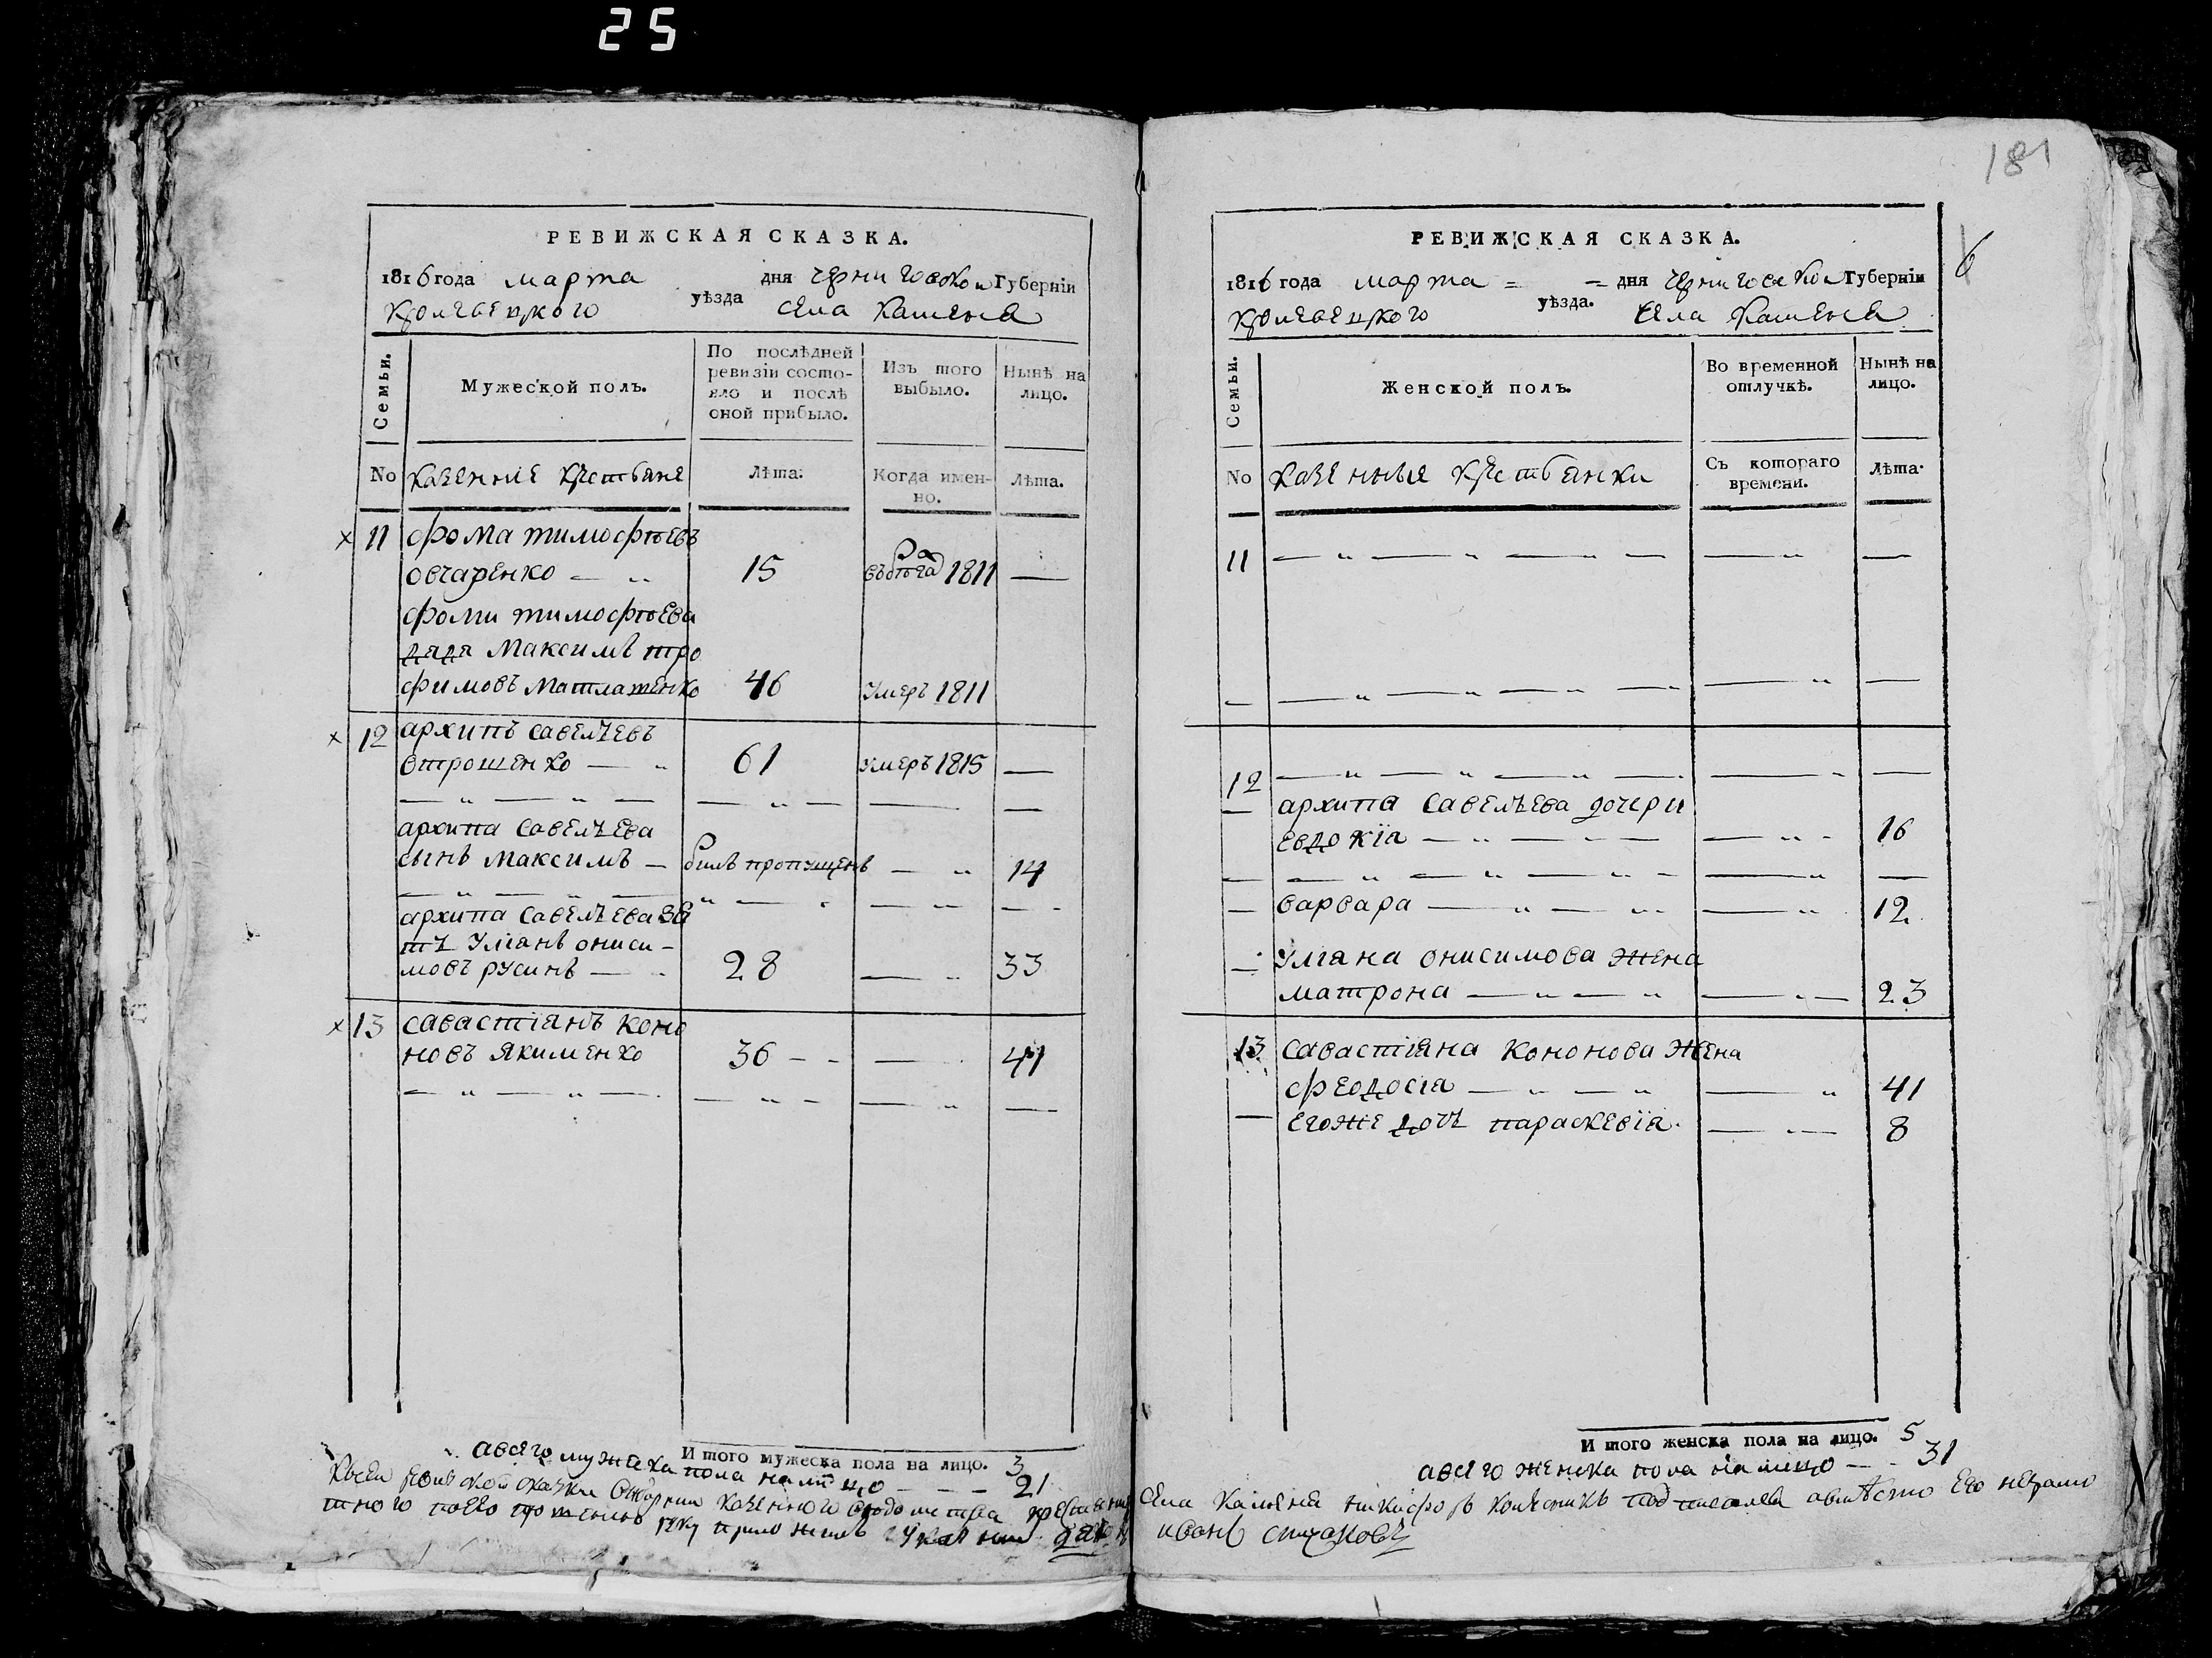 25
РЕВИЖСКАЯ СКАЗКА.
1816 года марта дня черниговской Губерніи
Кролевецкого уѣзда села Каменя
Семьи.
Мужеской полъ.
По послѣдней ревизіи состояло и послѣ оной прибыло.
Изъ того выбыло.
Нынѣ на лицо.
No казенніе крестьяне
Лѣта.
Когда именно.
Лѣта.
х 11 фома тимофѣевъ
овчаренко — 15 въ бѣга 1811 —
фоми тимофѣева
дядя Максимъ тро
фимовъ Матлашенко 46 умеръ 1811
х 12 архипъ савелѣевъ
отрошенко — 61 умеръ 1815 —
архипа савелѣева
сынъ Максимъ — билъ пропущенъ — 14
архипа савелѣева зя
ть Уліанъ ониси-
мовъ русинъ — 28 — 33
х 13 савастіянъ коно
новъ якименко 36 — — 41
И того мужеска пола на лицо. 3
авсего мужеска пола на лицо — — — 21
181
6
РЕВИЖСКАЯ СКАЗКА.
1816 года марта = = дня черниговской Губерніи
Кролевецкого уѣзда. села Каменя
Семьи.
Женской полъ.
Во временной отлучкѣ.
Нынѣ на лицо.
No казенныя крестьянки
Съ котораго времени.
Лѣта.
11 — — —
12 — — —
— архипа савелѣева дочери
евдокія — — 16
— варвара — — 12
— Уліана онисимова жена
матрона — — 23
13 савастіяна кононова жена
феодосія — — 41
— егоже дочь параскевія. — 8
И того женска пола на лицо. 5
авсего женска пола на лицо — — 31